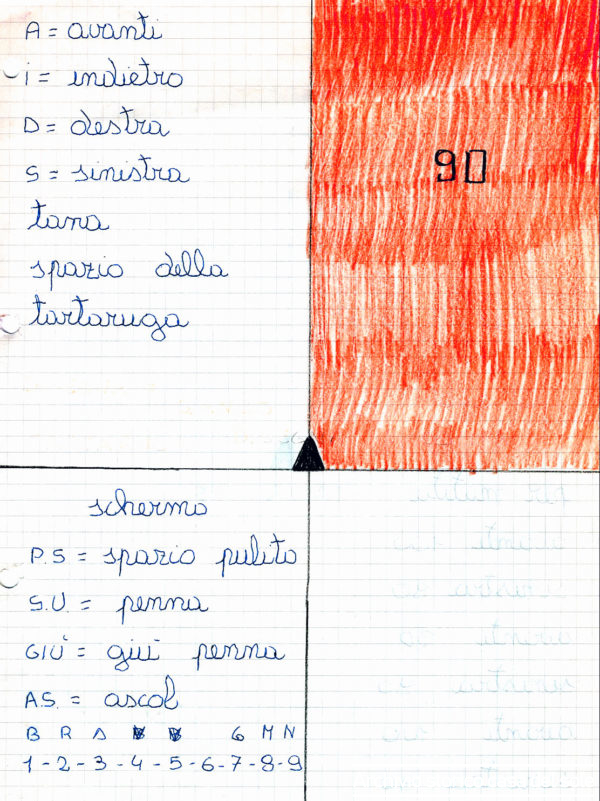 A = avanti
i = indietro
D = destra
S = sinistra
tana
spazio della
tartaruga
90
schermo
P.S = spazio pulito
S.U. = penna
GIÙ = giù penna
AS. = ascol
B R A G M N
1-2-3-4-5-6-7-8-9